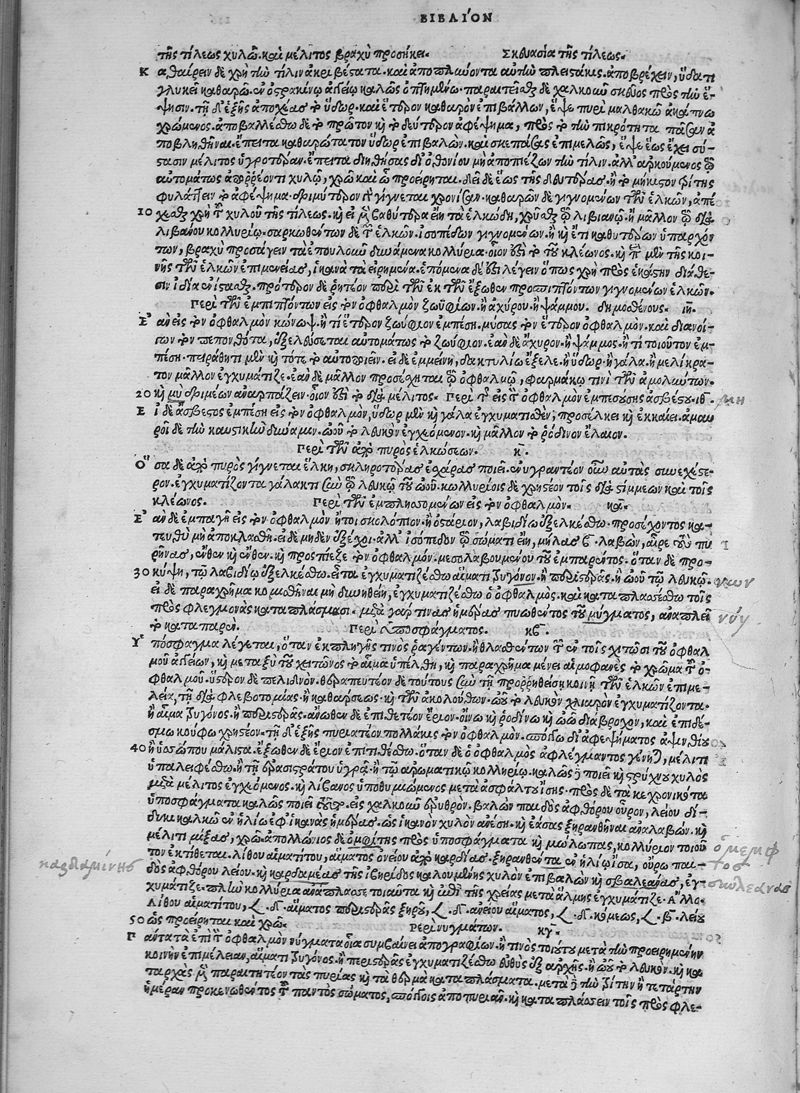 ΒΙΒΛΙΌΝ
τῆς τίλεως χυλῶ. καὶ μέλιτος βραχὺ προσήκει. Σκευασία τῆς τίλεως.
Κ αθαίρειν δὲ χρὴ τὴν τίλιν ἀκριβέστατα. καὶ ἀποπλύνοντα αὐτὴν πλειστάκις. ἀποβρέχειν, ὕδατι
γλυκεῖ καθαρῶ. ἐν ὀστρακίνω ἀγγείω καλῶς ὀπτημένω. παραιτεῖσθαι δὲ χαλκοῦν σκεῦος πρὸς τὴν ἕ-
ψησιν. τῆ δ' ἑξῆς ἀποχέας τὸ ὕδωρ. καὶ ἕτερον καθαρὸν ἐπιβάλλων, ἕψε πυρὶ μαλθακῶ ἀκάπνω
χρώμενος. ἀποβαλλέσθω δὲ τὸ πρῶτον καὶ τὸ δεύτερον ἀφέψημα, πρὸς τὸ τὴν πικρότητα πᾶσαν ἀ
ποβληθῆναι. ἔπειτα καθαρώτατον ὕδωρ ἐπιβαλὼν. καὶ σκεπάσας ἐπιμελῶς, ἕψε ἕως ἔχει σύ-
στασιν μέλιτος ὑγροτέραν. ἔπειτα διηθήσας δι' ὀθονίου μὴ ἀποπιέζων τὴν τίλιν. ἀλλ' ἀρκούμενος τῶ
αὐτομάτως ἀπορρέοντι χυλῶ, χρῶ καὶ ὡς προείρηται. δεῖ δὲ ἕως τῆς δευτέρας ἢ τὸ μήκιστον τρίτης
φυλάττειν τὸ ἀφέψημα. δριμύτερον γὰρ γίγνεται χρονίζον. καθαρῶν δὲ γιγνομένων τῶν ἑλκῶν, ἀπέ
10 χεσθαι χρὴ τοῦ χυλοῦ τῆς τίλεως. καὶ εἰ μὲν βαθύτερα εἴη τὰ ἑλκύδρη, χρῆσθαι τῶ λιβιανῶ. ἢ μᾶλλον τῶ διὰ
λιβάνου κολλυρίω. σαρκωθέντων δὲ τῶν ἑλκῶν. ἰσοπέδων γιγνομένων. ἢ καὶ ἔτι βαθυτέρων ὑπαρχόν
των, βραχὺ προσάγειν τὰ ἐπουλοῦν δυνάμενα κολλύρια. οἷόν ἐστι τὸ τοῦ κλέωνος. καὶ περὶ μὲν τῆς κοι-
νῆς τῶν ἑλκῶν ἐπιμελείας, ἱκανὰ τὰ εἰρημένα. ἑπόμενα δέ ἐστι λέγειν ὅπως χρὴ πρὸς ἑκάστην διάθε-
σιν ἰδία ἐνίστασθαι. πρότερον δὲ ῥητέον περὶ τῶν ἐκ τῶν ἔξωθεν προσπιπτόντων γιγνομένων ἑλκῶν.
Περὶ τῶν ἐμπιπτόντων εἰς τὸν ὀφθαλμὸν ζωϋφίων. ἢ ἀχύρου. ἢ ψάμμου. δημοσθένους. ιη.
Ε' ὰν εἰς τὸν ὀφθαλμὸν κώνωψ. ἢ τὶ ἕτερον ζωύφιον ἐμπέση. μύσας τὸν ἕτερον ὀφθαλμὸν. καὶ διανοί-
γων τὸν πεπονθότα, ἐξελεύσεται αὐτομάτως τὸ ζωύφιον. ἐὰν δὲ ἄχυρον. ἢ ψάμμος. ἤ τι τοιοῦτον ἐμ-
πέση. πειράσθαι μὲν καὶ τότε τὸ αὐτὸ ποιεῖν. εἰ δ' ἐμμείνη, δακτυλίω ἔξελε. ἢ ὕδωρ. ἢ γάλα. ἢ μελίκρα-
τον μᾶλλον ἐγχυμάτιζε. ἐὰν δὲ μᾶλλον προσέχηται τῶ ὀφθαλμῶ, φαρμάκω τινὶ τῶν ἁπαλωτων.
20 καὶ μὺ δριμέων ἀναρπάζειν. οἷόν ἐστι τὸ διὰ μέλιτος. Περὶ τῆς εἰς τὸν ὀφθαλμὸν ἐμπεσούσης ἀσβέστου. ιθ. μὴ
Ε ἰ δὲ ἄσβεστος ἐμπέση εἰς τὸν ὀφθαλμὸν, ὕδωρ μὲν καὶ γάλα ἐγχυματισθὲν, προσέλκει καὶ ἐκκαίει. ἀμαυ
ροῖ δὲ τὴν καυστικὴν δύναμιν. ὠοῦ τὸ λευκὸν ἐγχεόμενον. καὶ μᾶλλον τὸ ῥόδινον ἔλαιον.
Περὶ τῶν ἀπὸ πυρὸς ἑλκώσεων. κ.
Ο῞ σα δὲ ἀπὸ πυρὸς γίγνεται ἕλκη, σκληροτέρας ἐσχάρας ποιεῖ. ἐνυγραντέον οὖν αὐτὰς συνεχέστε-
ρον. ἐγχυματίζοντα γάλακτι σὺν τῶ λευκῶ τοῦ ὠοῦ. κολλυρίοις δὲ χρηστέον τοῖς διὰ τίμμεων καὶ τοῖς
κλέωνος. Περὶ τῶν ἐμπλησσομένων εἰς τὸν ὀφθαλμὸν. κα.
Ε' ὰν δὲ ἐμπαγῆ εἰς τὸν ὀφθαλμὸν ἤτοι σκολόπιον. ἢ ὀστάριον, λαβιδίω ἐξελκέσθω. προσέχοντος κα-
τευθὺ μὴ ἀποκλασθῆ. εἰ δὲ μηδὲν ἐξέχοι. ἀλλ' ἰσόπεδον τῶ σώματι εἴη, μήλας β. λαβὼν, αἶρε τοὺς πυ
ρῆνας, ἔνθεν καὶ ἔνθεν. καὶ προσπίεζε τὸν ὀφθαλμόν. μεσολαβουμένου τοῦ ἐμπαρέντος. ὅταν δὲ προ-
30 κύψη, τῶ λαβιδίω ἐξελκέσθω. εἶτα ἐγχυματιζέσθω αἵματι τρυγόνος. ἢ περιστερᾶς. ἢ ὠοῦ τῶ λευκῶ.
εἰ δὲ παραχρῆμα κομισθῆναι μὴ δυνηθείη, ἐγχυματιζέσθω ὁ ὀφθαλμός. καὶ καταπλασσέσθω τοῖς
πρὸς φλεγμονὰς καταπλάσμασι. μετὰ γάρ τινας ἡμέρας πυωθέντος τοῦ μύγματος, ἀναπλεῖ νύγ
τὸ καταπαρέν. Περὶ ὑποσφάγματος. κβ.
Υ῾ πόσφαγμα λέγεται, ὅταν ἐκ πληγῆς τινὸς ῥαγέντων. ἢ θλασθέντων τῶν ἐν τοῖς χιτῶσι τοῦ ὀφθαλ
μοῦ ἀγγείων, καὶ μεταξὺ τοῦ χιτῶνος τὸ αἷμα ὑπέλθη, καὶ παραχρῆμα μένει αἱμοφανὲς τὸ χρῶμα τοῦ ὀ-
φθαλμοῦ. ὕστερον δὲ πελιδνόν. θεραπευτέον δὲ τούτους σὺν τῆ προρρηθείση κοινῆ τῶν ἑλκῶν ἐπιμε-
λεία, τῆ διὰ φλεβοτομίας. ἢ καθάρσεως. καὶ τῶν ἀκολούθων. ὠοῦ τὸ λευκὸν χλιαρὸν ἐγχυματίζοντα.
ἢ αἷμα τρυγόνος. ἢ περιστερᾶς. ἄνωθεν δὲ ἐπιθετέον ἔριον. οἴνω καὶ ῥοδίνω καὶ ὠῶ διάβροχον, καὶ ἐπιδέ-
σμω κούφω χρηστέον. τῆ δ' ἑξῆς πυριατέον πολλάκις τὸν ὀφθαλμόν. σπόγγω δι' ἀφεψήματος ἀψινθίου
40 ἢ ὑσσώπου μάλιστα. ἔξωθεν δὲ ἔριον ἐπιτιθέσθω. ὅταν δὲ ὁ ὀφθαλμὸς ἀφλέγμαντος γένηται, μέλιτι
ὑπαλειφέσθω. ἢ τῆ ἐρασιστράτου ὑγρᾶ. ἢ τῶ ἀρωματικῶ κολλυρίω. καλῶς δὲ ποιεῖ καὶ στρύχνου χυλὸς
μετὰ μέλιτος ἐγχεόμενος. καὶ λίβανος ὑποθυμιώμενος μετὰ ἀσφάλτου ἴσης. πρὸς δὲ τὰ κεχρονικότα
ὑποσφάγματα καλῶς ποιεῖ. εἰς χαλκοῦν ἐρυθρὸν. βαλὼν παιδὸς ἀφθόρου οὖρον, λείου δοί-
δυκι χαλκῶ ἐν ἡλίω ἐφ' ἱκανὰς ἡμέρας. ὡς ἱκανὸν χυλὸν ἀνέση. καὶ ἐάσας ξηρανθῆναι ἀναλαβὼν. καὶ
μέλιτι μίξας, χρῶ. ἀπολλώνιος δὲ ὀμφίτης πρὸς ὑποσφάγματα καὶ μώλωπας, κολλύριον τοιοῦ ὁ μεμφ
τον ἐκτίθεται. λίθου αἱματίτου, αἵματος ὀνείου ἀπὸ καρδίας. ξηρανθέντα ἐν ἡλίω ἴσα, οὔρω παι- της
δὸς ἀφθόρου λείου. καὶ καρδαμέσης τῆς ἰβηρίδος καλουμένης χυλὸν ἐπιβαλὼν καὶ σβαλεάνας, ἐγ-
χυμάτιζε. τινὲς κολλύρια ἀναπλάσσετε τοιαῦτα καὶ ἐπὶ τῆς χρείας μετὰ ἅλμης ἐγχυμάτιζε. Ἄλλο.
Λίθου αἱματίτου, δ. αἵματος περιστερᾶς ξηροῦ, δ. ὀνείου αἵματος, δ. κόμεως, β. λείου
50 ὡς προείρηται καὶ χρῶ. Περὶ νυγμάτων. κγ.
Γ αῦτα τὰ ἐπὶ τὸν ὀφθαλμὸν νύγματα οἷα συμβαίνει ἀπὸ γραφίων. ἤ τινος τοιούτου μετὰ τὴν προειρημένην
κοινὴν ἐπιμέλειαν, αἵματι τρυγόνος. ἢ περιστερᾶς ἐγχυματιζέσθω εὐθὺς ἐξ ἀρχῆς. ἢ ὠοῦ τὸ λευκόν. καὶ κα
ταρχὰς μὲν παραιτητέον τὰς πυρίας καὶ τὰ θερμὰ καταπλάσματα. μετὰ δὲ τὴν τρίτην ἢ τετάρτην
ἡμέραν προκενωθέντος τοῦ παντὸς σώματος, σπόγγοις ἀποπυριᾶν. καὶ καταπλάσσειν τοῖς πρὸς φλε-